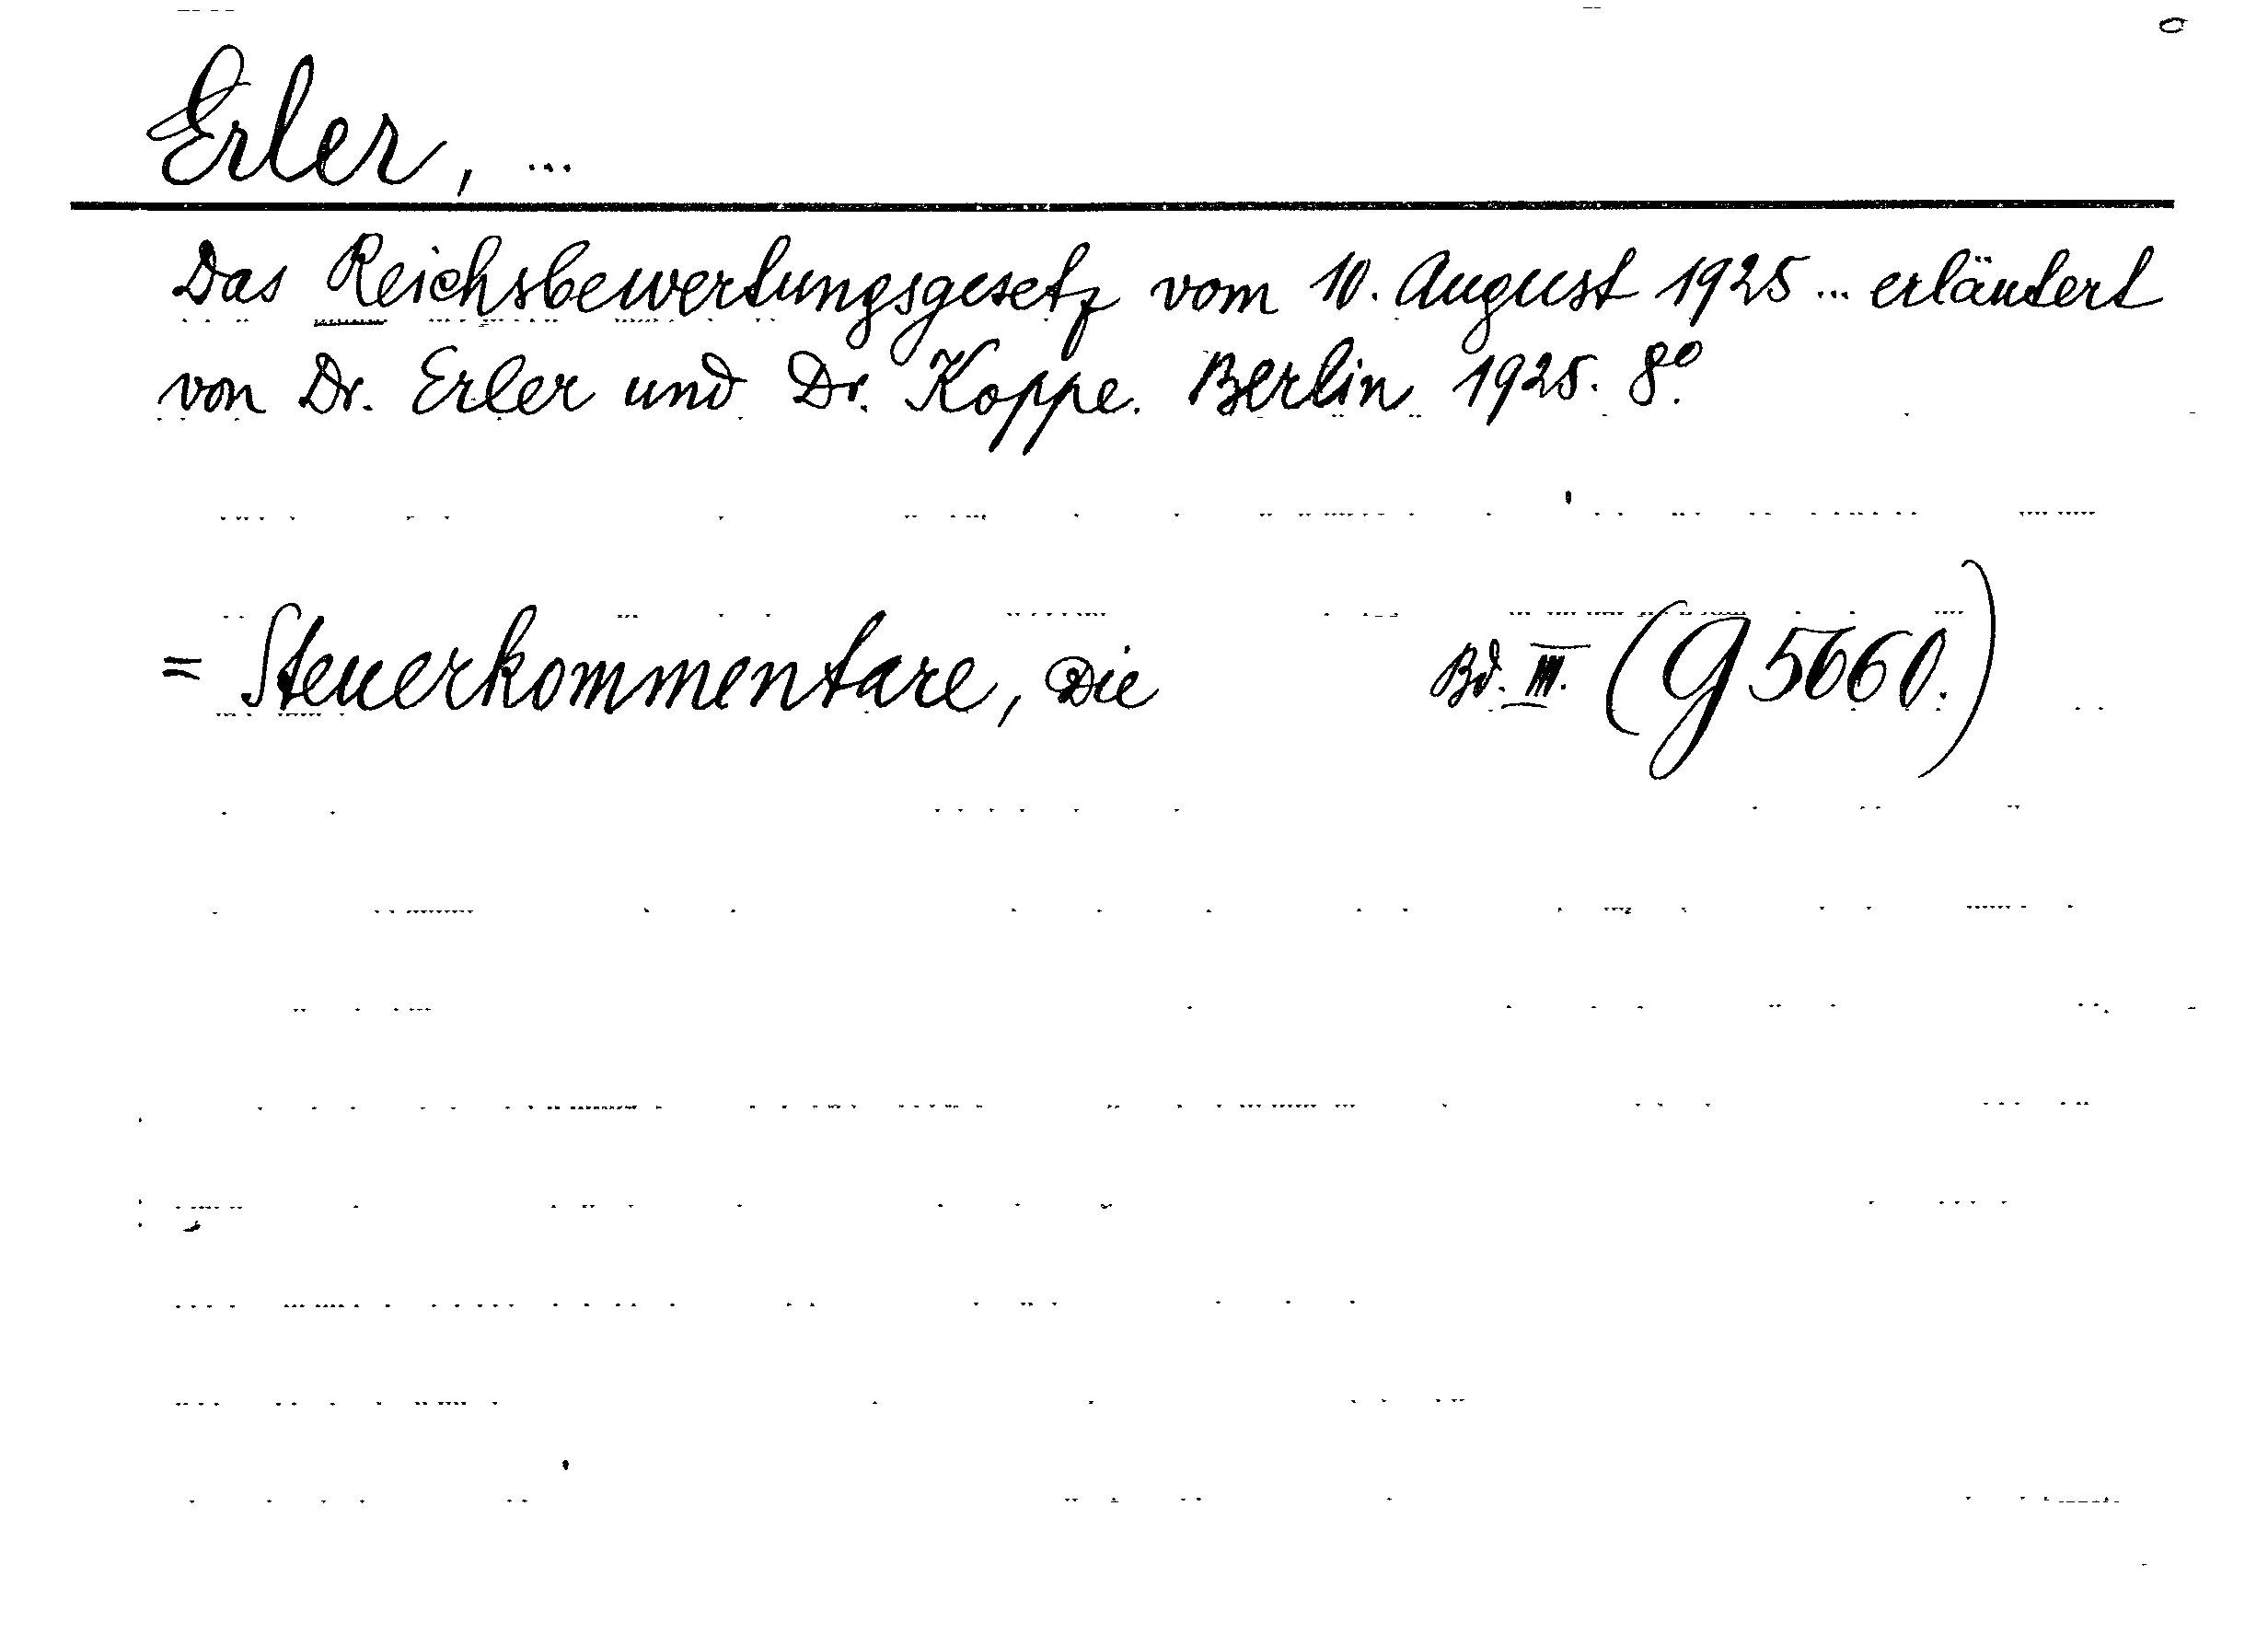 Erler, ...
Das Reichsbewertungsgesetz vom 10. August 1925 ... erläutert
von Dr. Erler und Dr. Koppe. Berlin 1925. 8°.
= Steuerkommentare, Die Bd. III. (G 5660.)